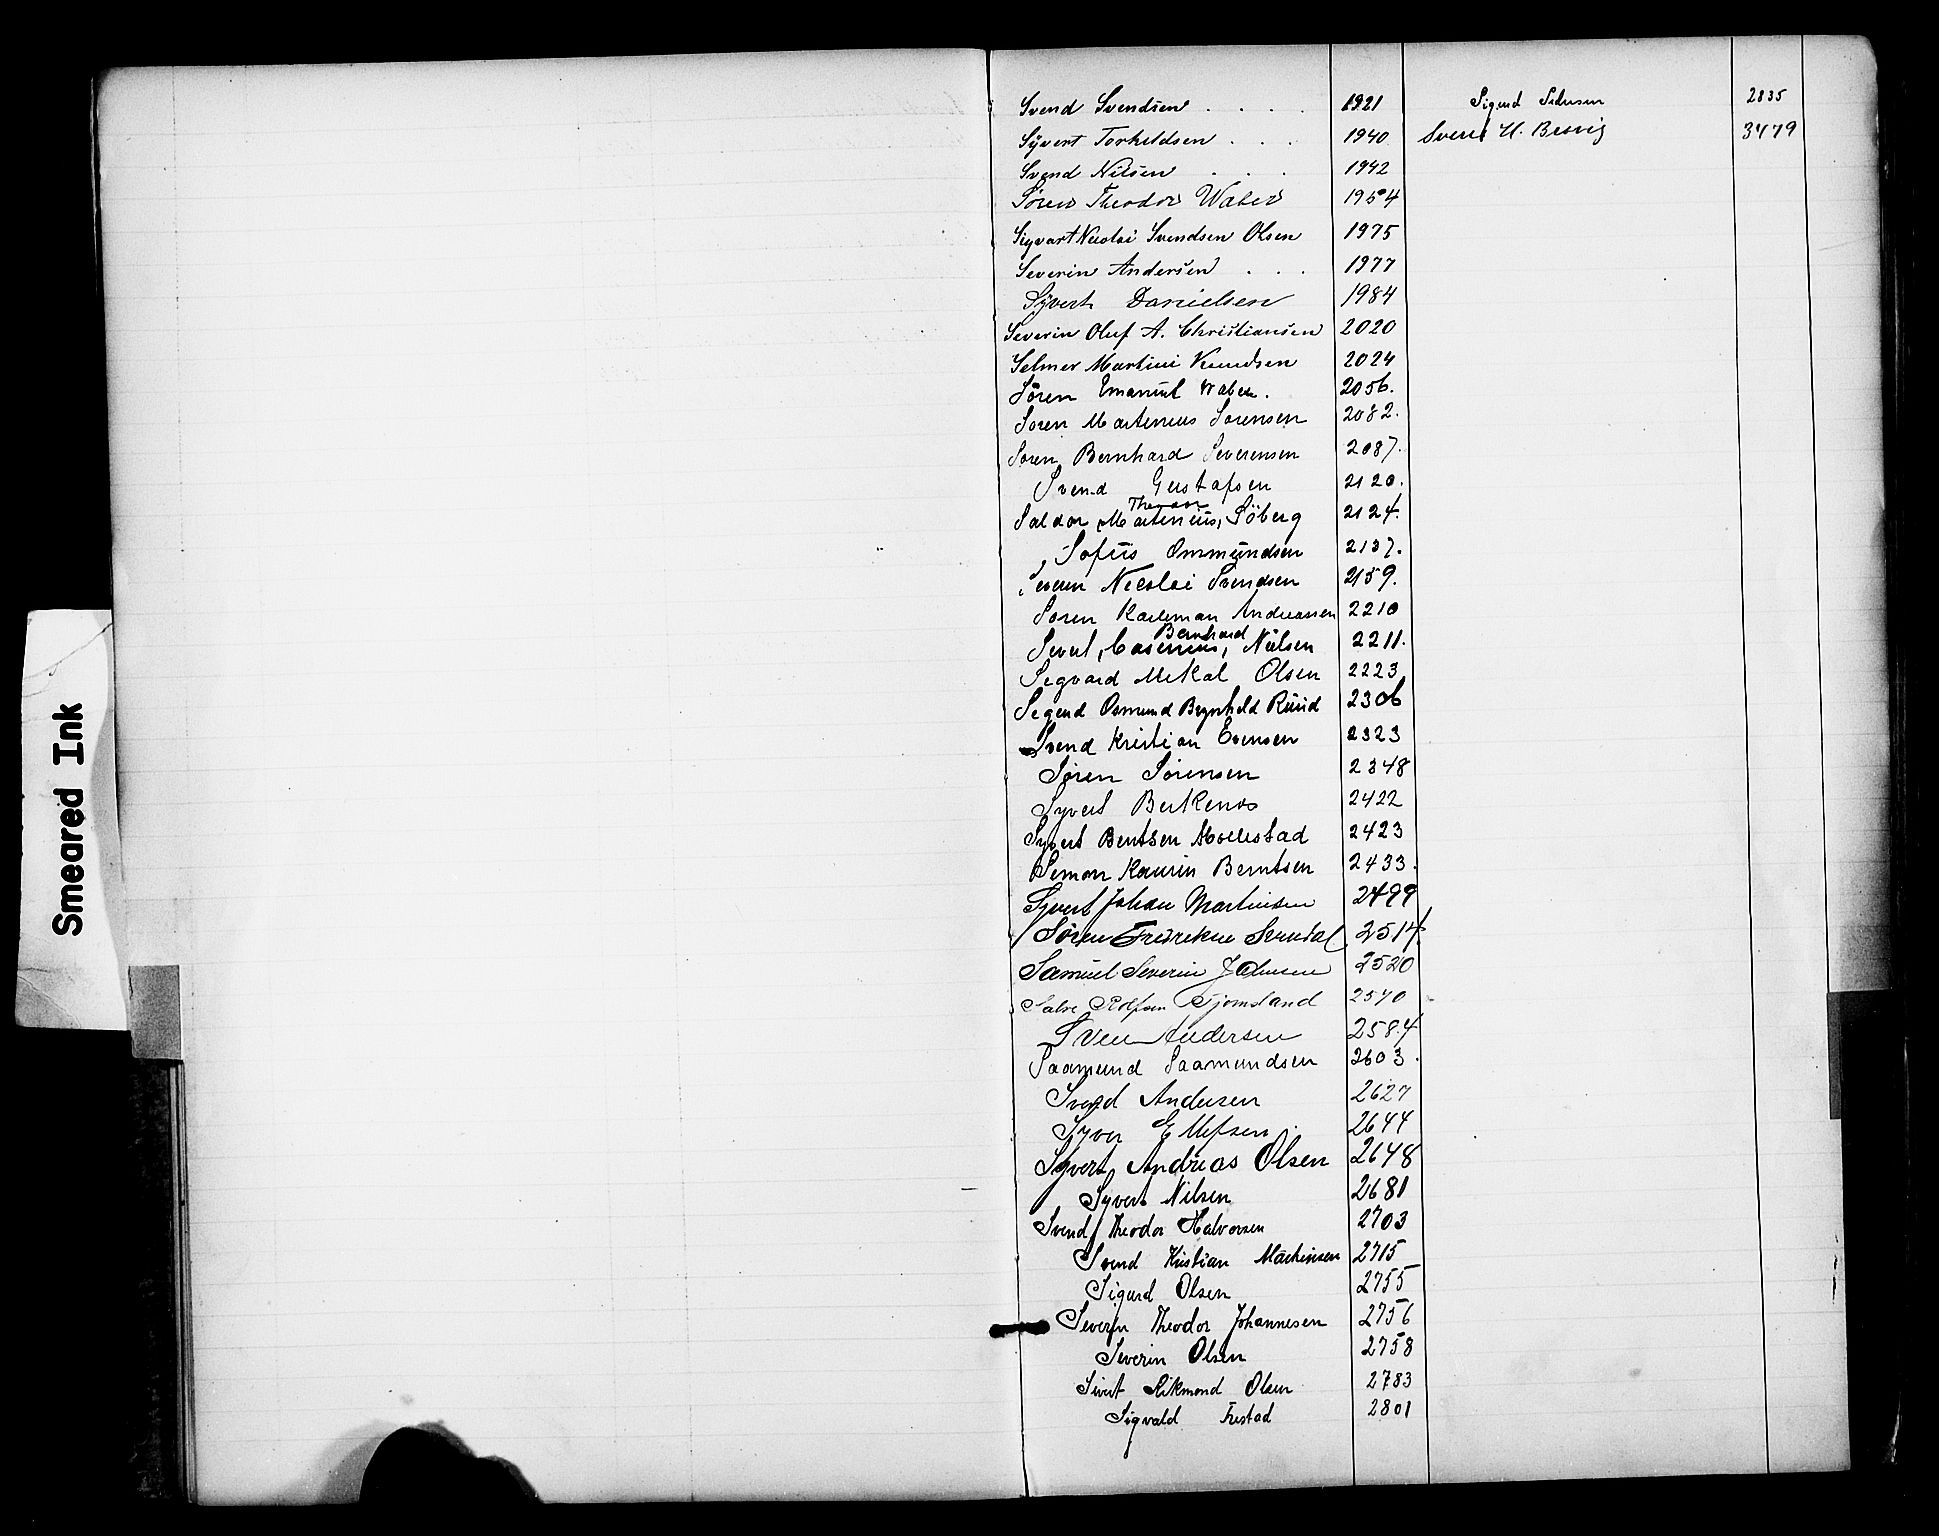 Smeared Ink
Svend Svendsen . . . . 1921
Syvert Torkeldsen . . . 1940
Svend Nilsen . . . 1942
Søren Theodor Waber 1954
Sigvart Nicolai Svendsen Olsen 1975
Severin Andersen . . . 1977
Syvert Danielsen 1984
Severin Oluf A. Christiansen 2020
Selmer Martini Knudsen 2024
Søren Emanuel Waber. 2056.
Soren Martenius Sorensen 2082.
Soren Bernhard Severensen 2087.
Svend Gustafsen 2120.
Theodor
Saldor, Martenius, Söberg 2124.
Sofus Ommundsen 2137.
Nicolai Svendsen 2159.
Soren Karleman Andreassen 2210
Bernhard
Sevel, Casenius, Nielsen 2211.
Segvard Mekal Olsen 2223
Segurd Osmund Brynheld Ruud 2306
Svend Kristian Evensen 2323
Søren Sørensen 2348
Syvert Berkenos 2422
Syvert Bentsen Mollestad 2423
Semon Kaurin Berntsen 2433.
Syvert Johan Martinsen 2499
Søren Fredrekne 2514
Samuel Severin Johnsen 2520
Salve Rolfsen Tjomsland 2570
Sven Andersen 2584
Saamund Saamundsen 2603.
Svend Andersen 2627
Syver Ellefsen. 2644
Syvert Andreas Olsen 2648
Syvert Nilsen 2681
Svend Theodor Halvorsen 2703
Svend Kristian Martinsen 2715
Sigurd Olsen 2755
Severin Theodor Johannesen 2756
Severin Olsen 2758
Sivert Rikmond Olsen 2783
Sigvald Frestad 2801
Sigurd Pedersen 2835
Svend H. Besvig 3479